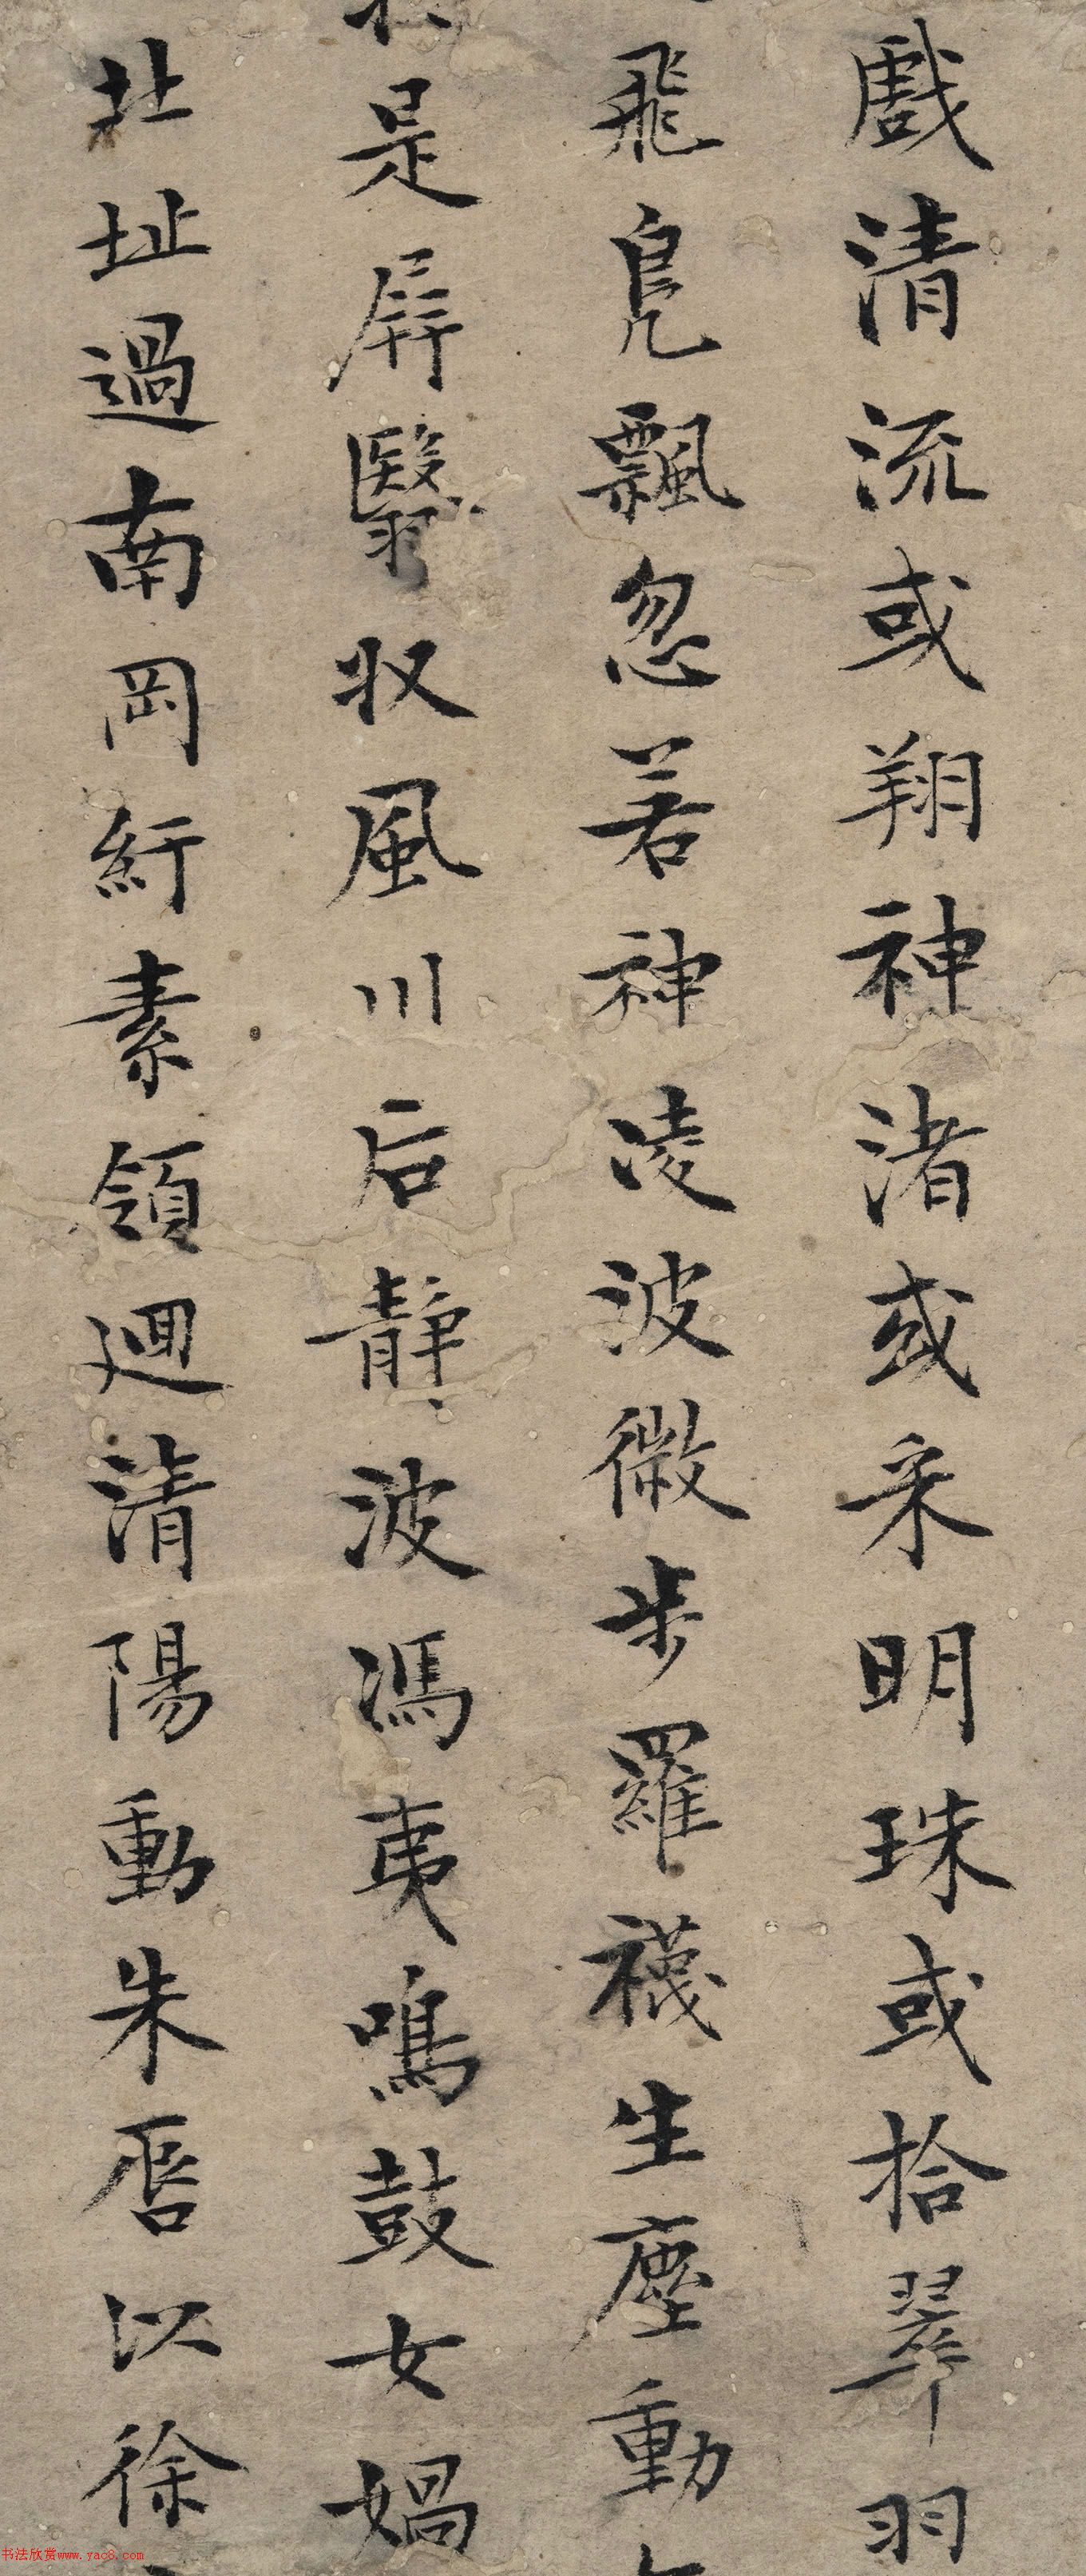 戲清流或翔神渚或采明珠或拾翠羽
飛鳧飄忽若神凌波微步羅襪生塵動
是屏翳收風川后靜波馮夷鳴鼓女媧
北址過南岡紆素領迴清陽動朱唇以徐
书法欣赏www.yac8.com